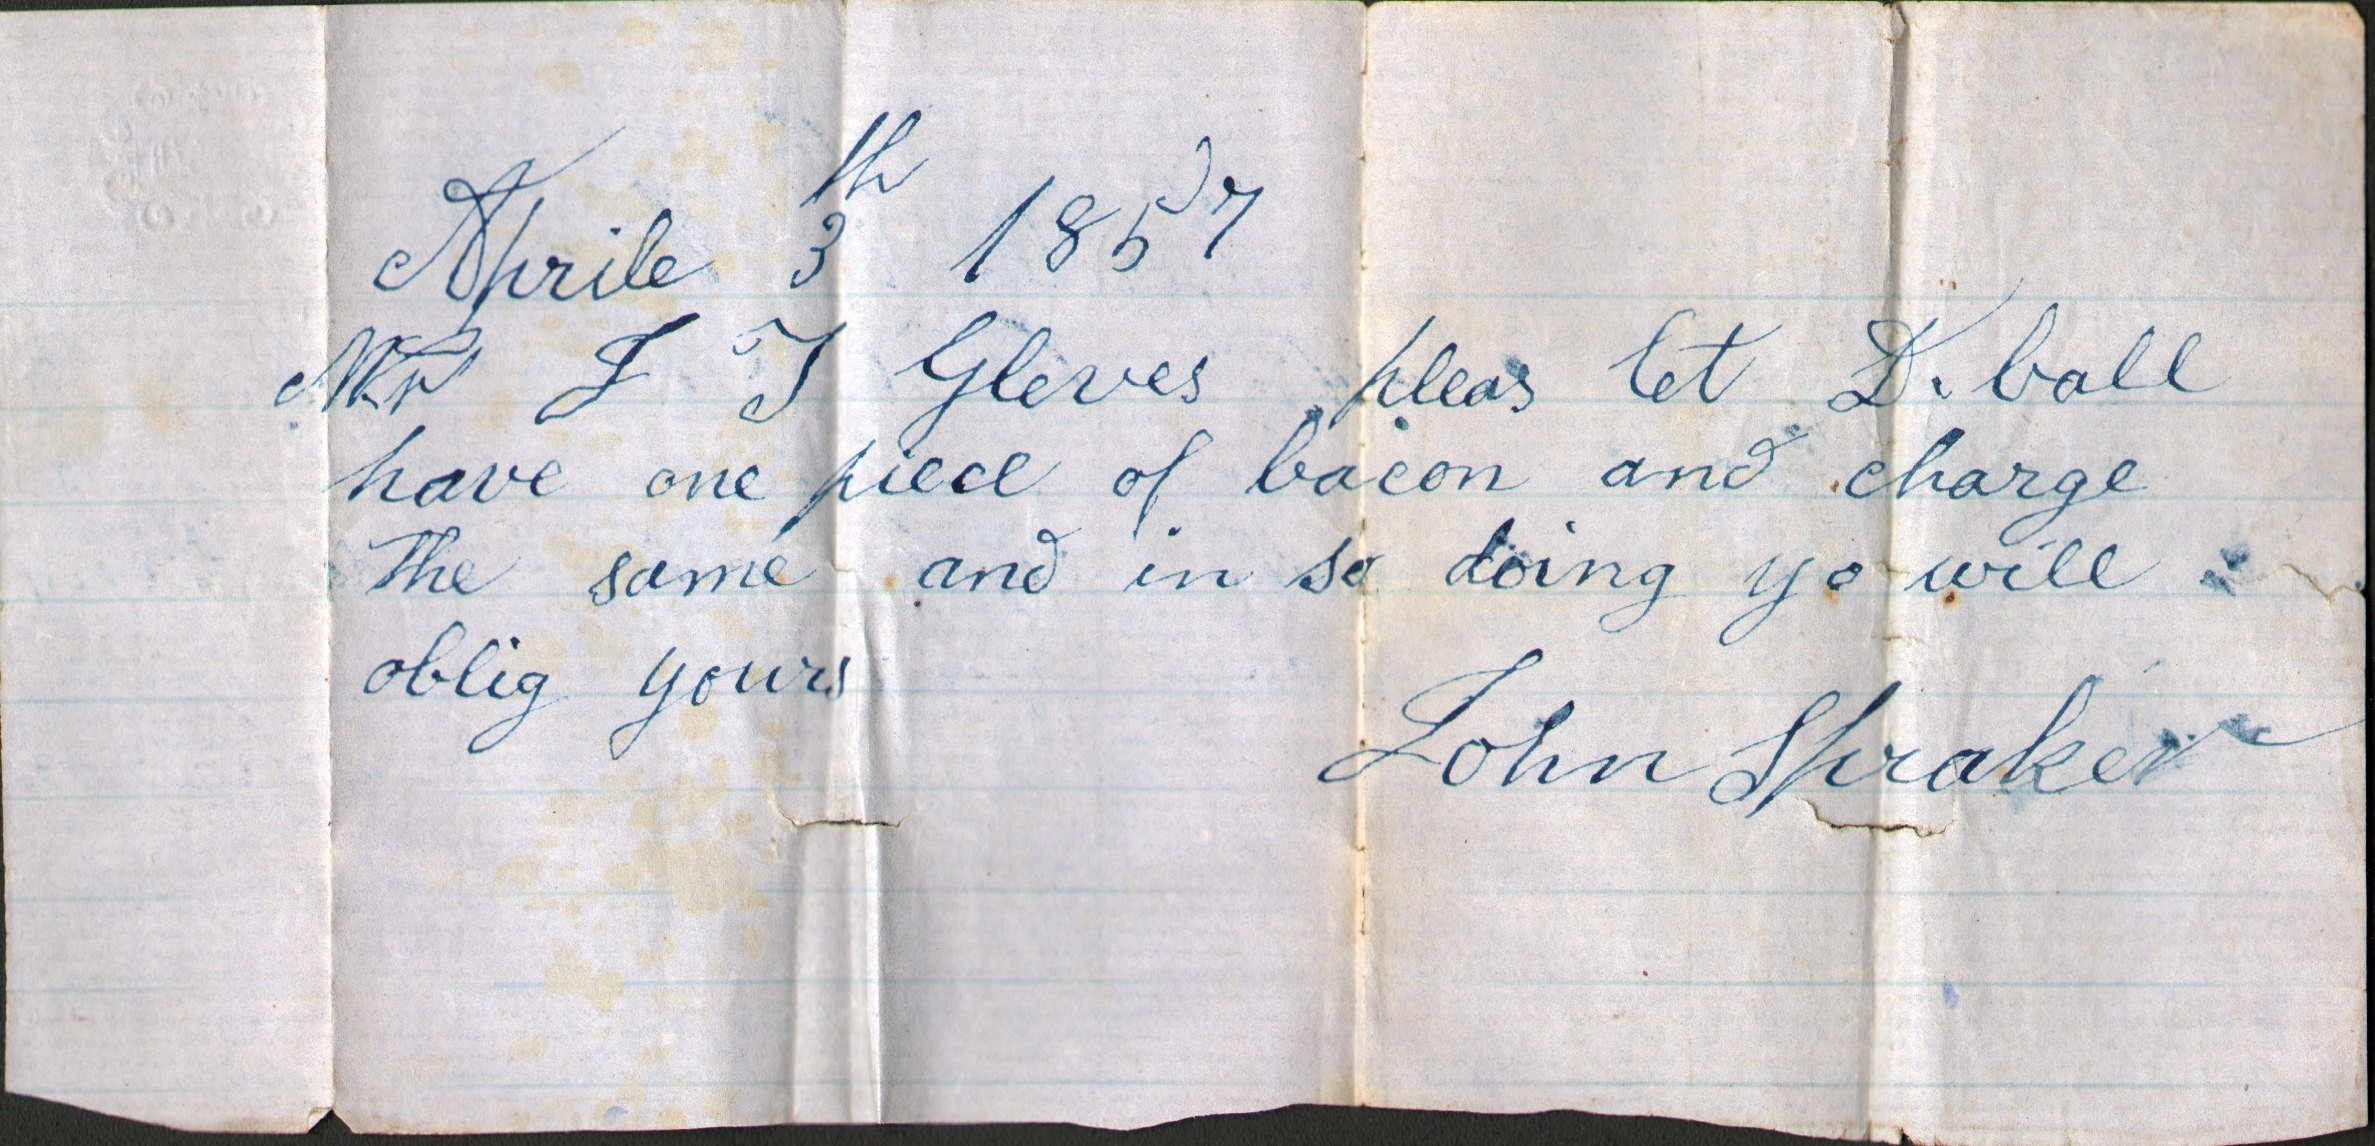 Aprile 3th 1857
Mr J T Gleves pleas let D. ball
have one piece of bacon and charge
The same and in so doing yo will
oblig yours
John Spraker